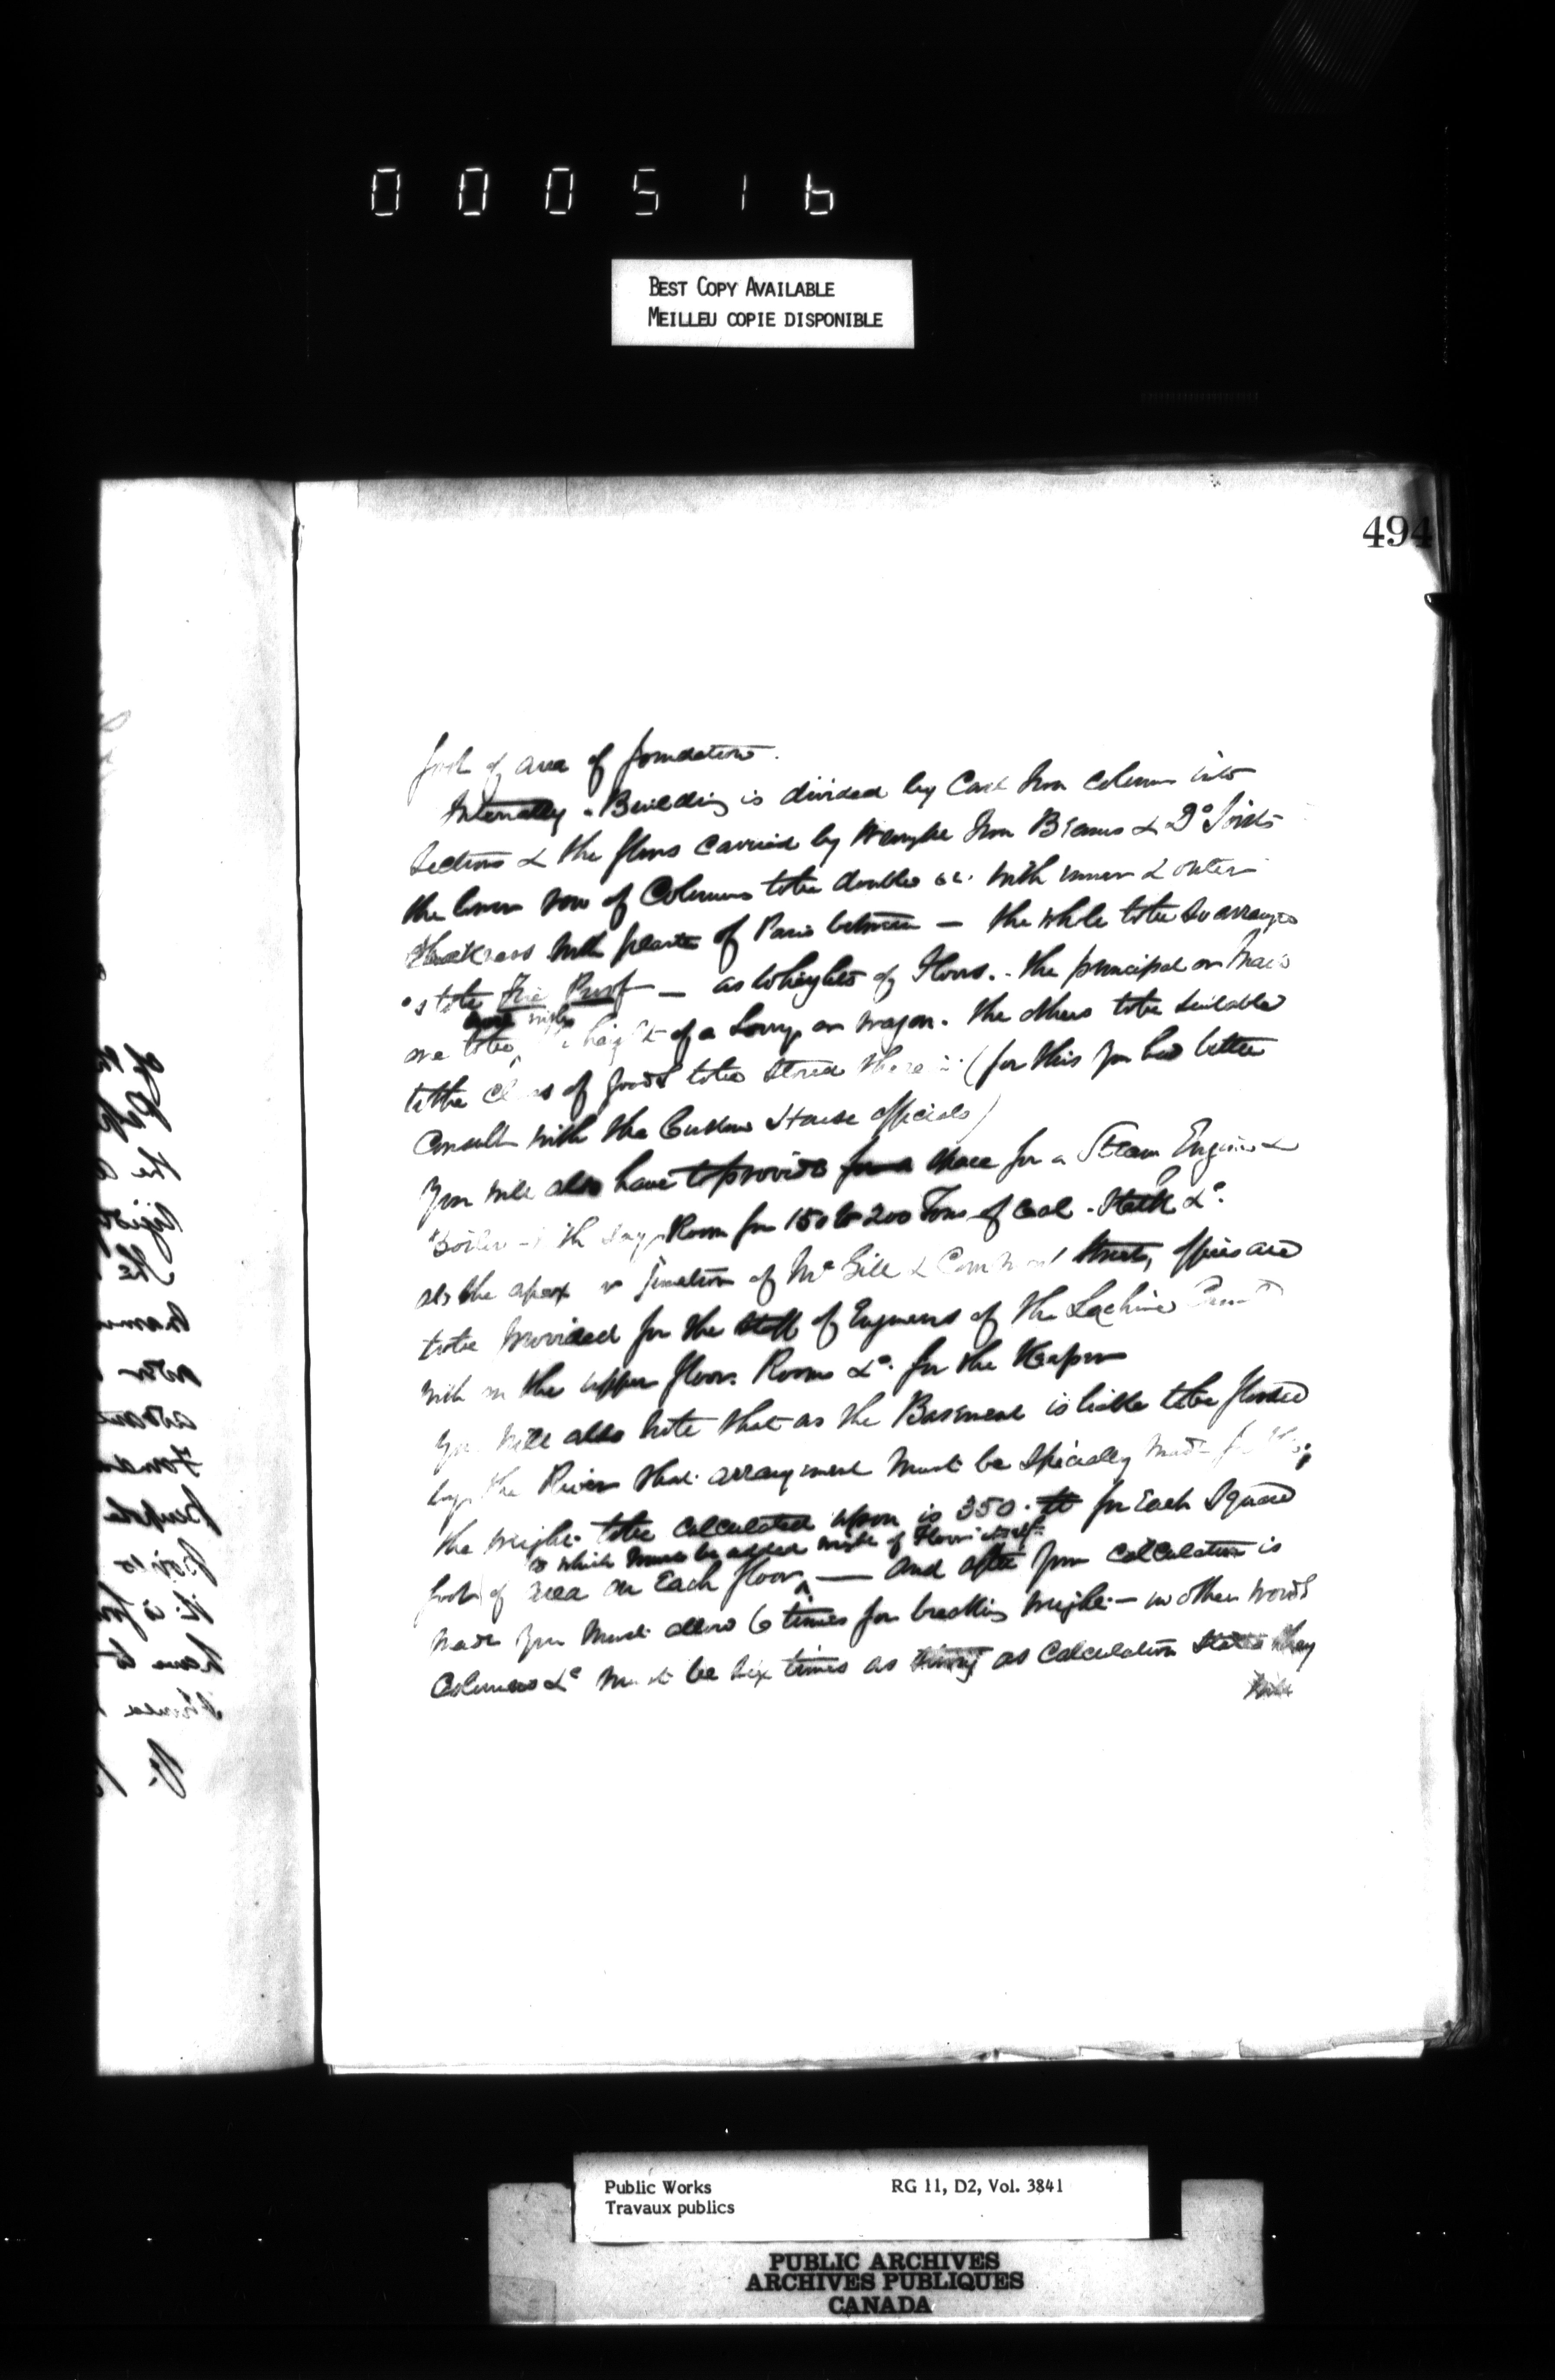 000516
BEST COPY AVAILABLE
MEILLEU COPIE DISPONIBLE
494
foot of area of foundation.
Internally - Building is divided by Cast Iron Columns into
Sections & the floors carried by Wrought Iron Beams & Do Joists
the lower row of Columns to be double with inner & outer
thickness with plaster of Paris between — the whole to be so arranged
as to be Fire Proof — as to heights of Floors. - the principal or Main
one to be height of a Lorry or wagon. the others to be suitable
to the class of goods to be stored therein (for this you had better
Consult with the Custom House officials)
You will also have to provide space for a Steam Engine &
Boiler - Room for 150 to 200 Tons of Coal - &c.
at the apex or junction of McGill & Common Streets, offices are
to be provided for the staff of Engineers of the Lachine Canal
with on the upper floor. Rooms &c. for the Keeper
You will also note that as the Basement is liable to be flooded
by the River that arrangement must be specially made for this;
the weight to be calculated upon is 350. lb for Each Square
to which must be added weight of Floor itself
foot of area on Each floor — and after your calculation is
made you must allow 6 times for breaking weight — in other words
Columns &c must be six times as strong as Calculation states they
will
Public Works
Travaux publics
RG 11, D2, Vol. 3841
PUBLIC ARCHIVES
ARCHIVES PUBLIQUES
CANADA